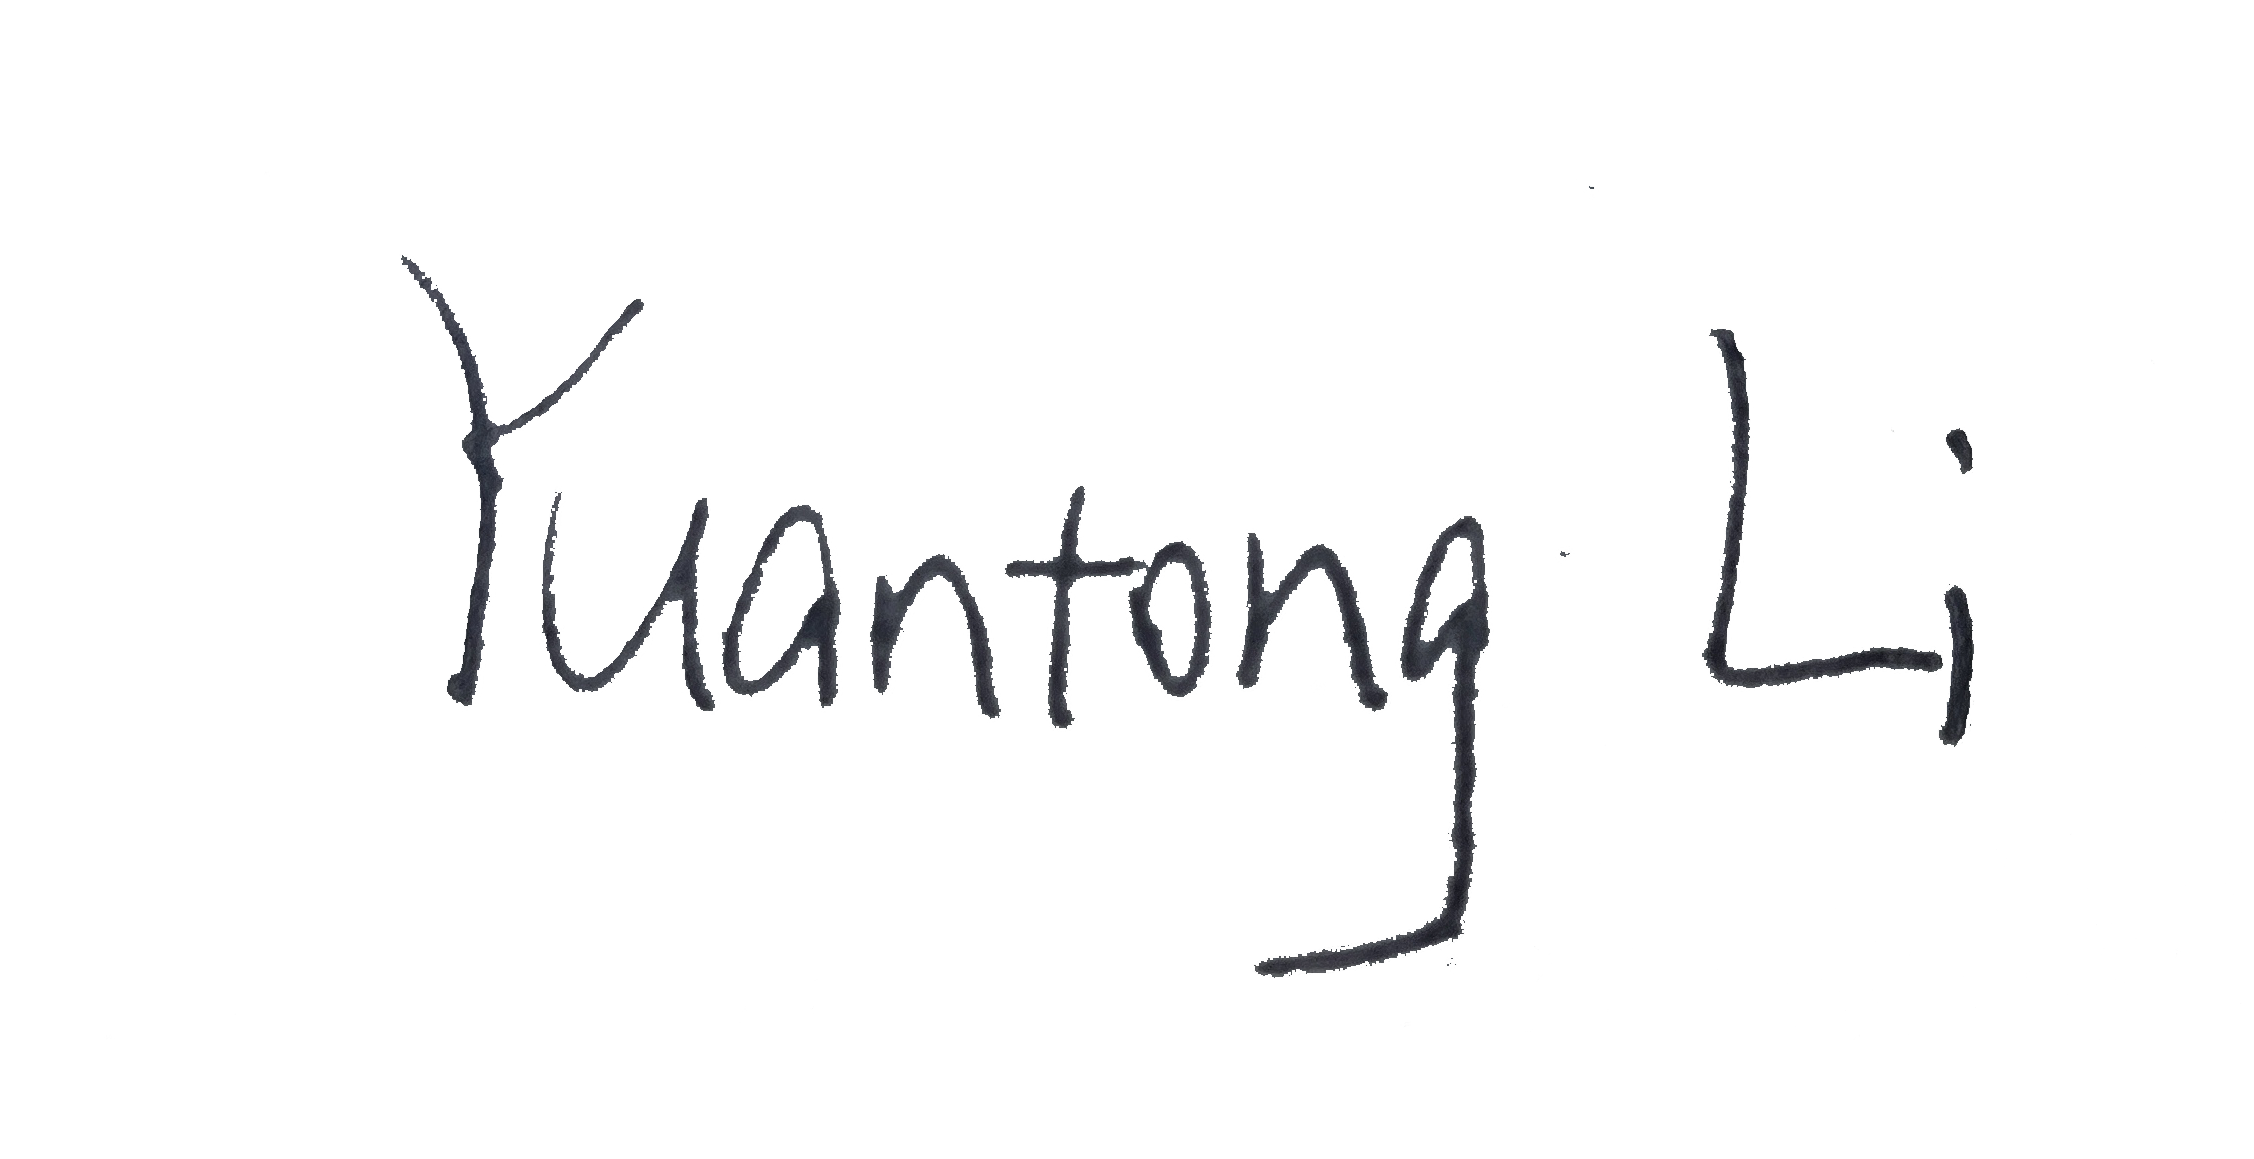 Yuantong Li